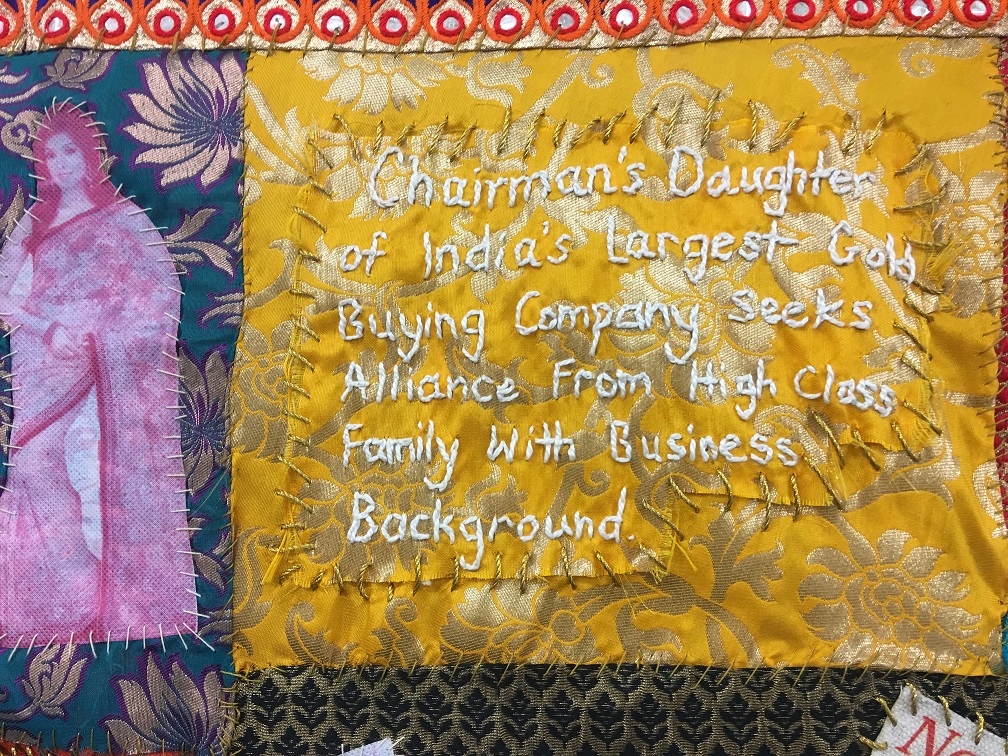 Chairman's Daughter
of India's Largest Gold
Buying Company Seeks
Alliance From High Class
Family With Business
Background.
N